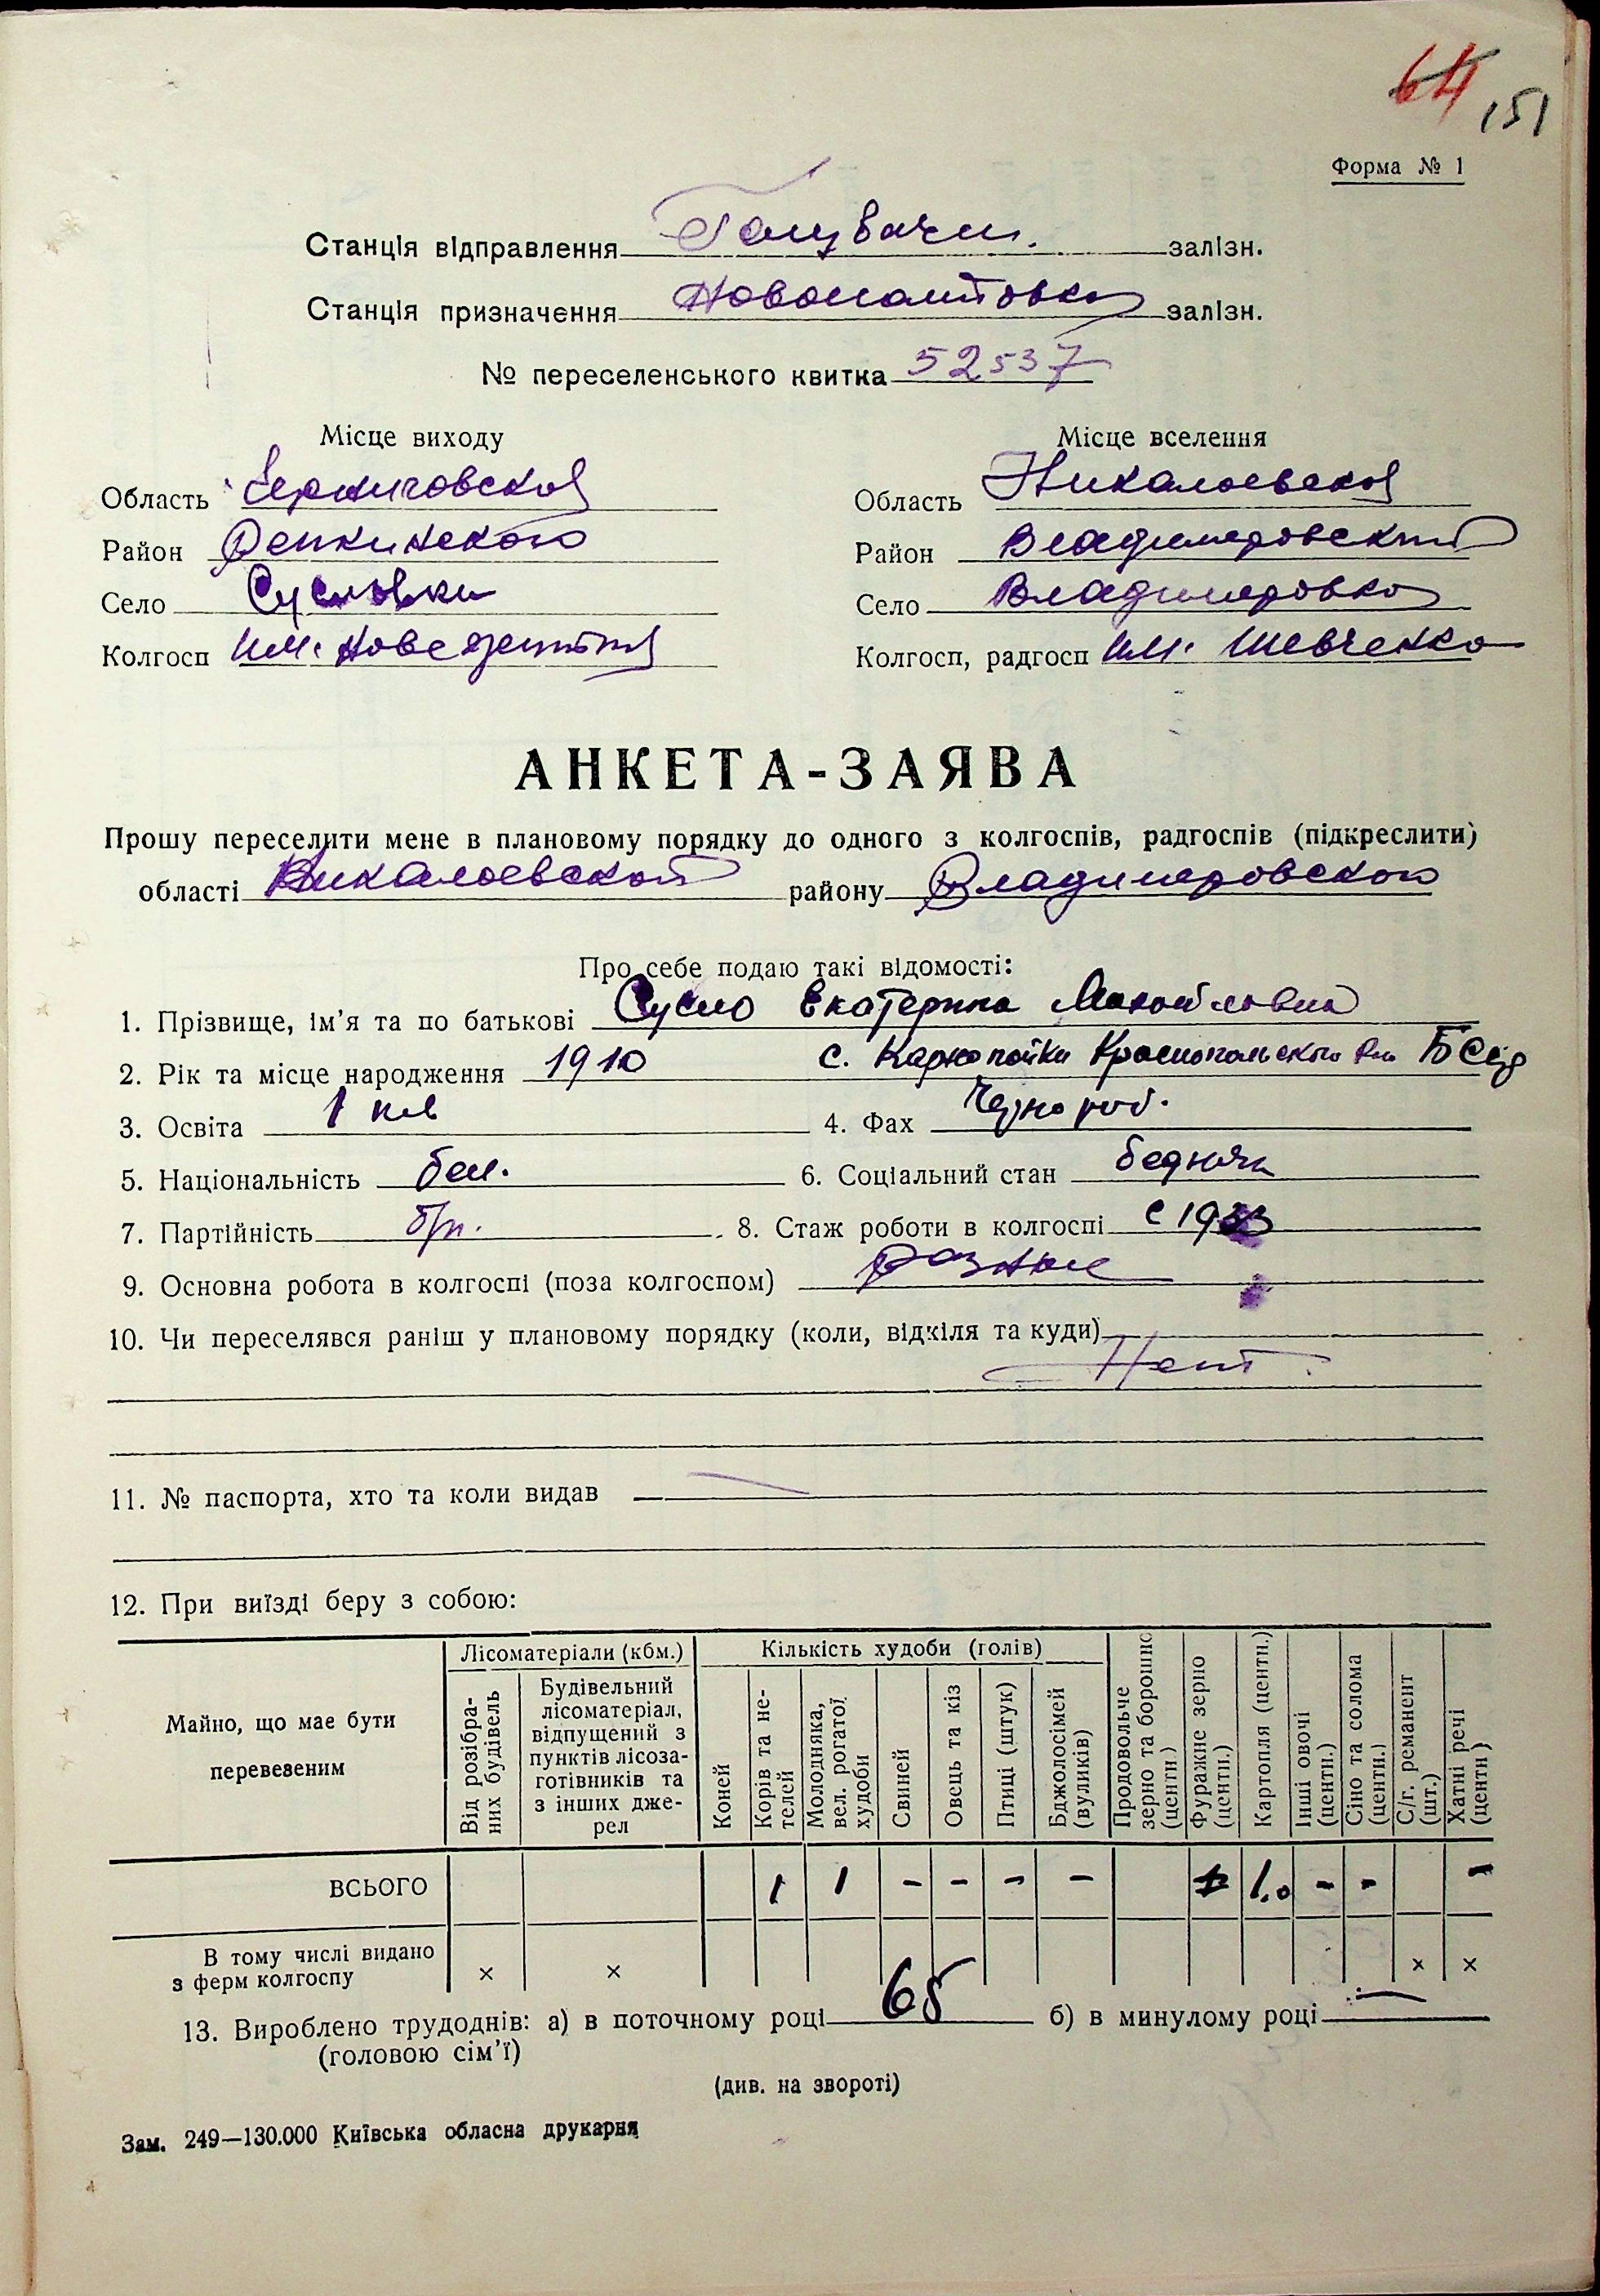 64 151
Форма № 1
Станція відправлення Голубичи. залізн.
Станція призначення Новополтовка залізн.
№ переселенського квитка 52537
Місце виходу Місце вселення
Область Черниговской Область Николаевской
Район Репкинского Район Владимировский
Село Сусловка Село Владимировка
Колгосп им. Колгосп, радгосп им. Шевченко
АНКЕТА-ЗАЯВА
Прошу переселити мене в плановому порядку до одного з колгоспів, радгоспів (підкреслити)
області Николаевской району Владимировского
Про себе подаю такі відомості:
1. Прізвище, ім’я та по батькові Сусло Екатерина
2. Рік та місце народження 1910 с. Краснопольского р-на БССР
3. Освіта 1 кл 4. Фах Чернораб.
5. Національність бел. 6. Соціальний стан бедняк
7. Партійність б/п. 8. Стаж роботи в колгоспі с 1933
9. Основна робота в колгоспі (поза колгоспом) разные
10. Чи переселявся раніш у плановому порядку (коли, відкіля та куди)
Нет.
11. № паспорта, хто та коли видав —
12. При виїзді беру з собою:
Майно, що має бути перевезеним
Лісоматеріали (кбм.)
Від розібра-
них будівель
Будівельний
лісоматеріал,
відпущений з
пунктів лісоза-
готівників та
з інших дже-
рел
Кількість худоби (голів)
Коней
Корів та не-
телей
Молодняка,
вел. рогатої
худоби
Свиней
Овець та кіз
Птиці (штук)
Бджолосімей
(вуликів)
Продовольче
зерно та борошно
(центн.)
Фуражне зерно
(центн.)
Картопля (центн.)
Інші овочі
(центн.)
Сіно та солома
(центн.)
С/г. реманент
(шт.)
Хатні речі
(центн)
ВСЬОГО 1 1 – – – – 1,0 – – –
В тому числі видано
з ферм колгоспу × × × ×
13. Вироблено трудоднів: а) в поточному році 65 б) в минулому році —
(головою сім’ї)
(див. на звороті)
Зам. 249—130.000 Київська обласна друкарня